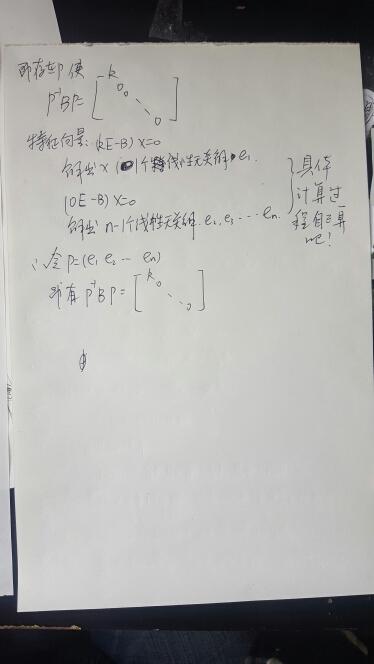 即存在P使
P⁻¹BP=[k 0 0 ⋱ 0]
特征向量:(kE-B)X=0
解出X 1个线性无关解 e₁.
(0E-B)X=0
解出n-1个线性无关解.e₂,e₃…eₙ.
具体
计算过
程自己算
吧!
∴令P=(e₁ e₂ … eₙ)
就有P⁻¹BP=[k 0 ⋱ 0]